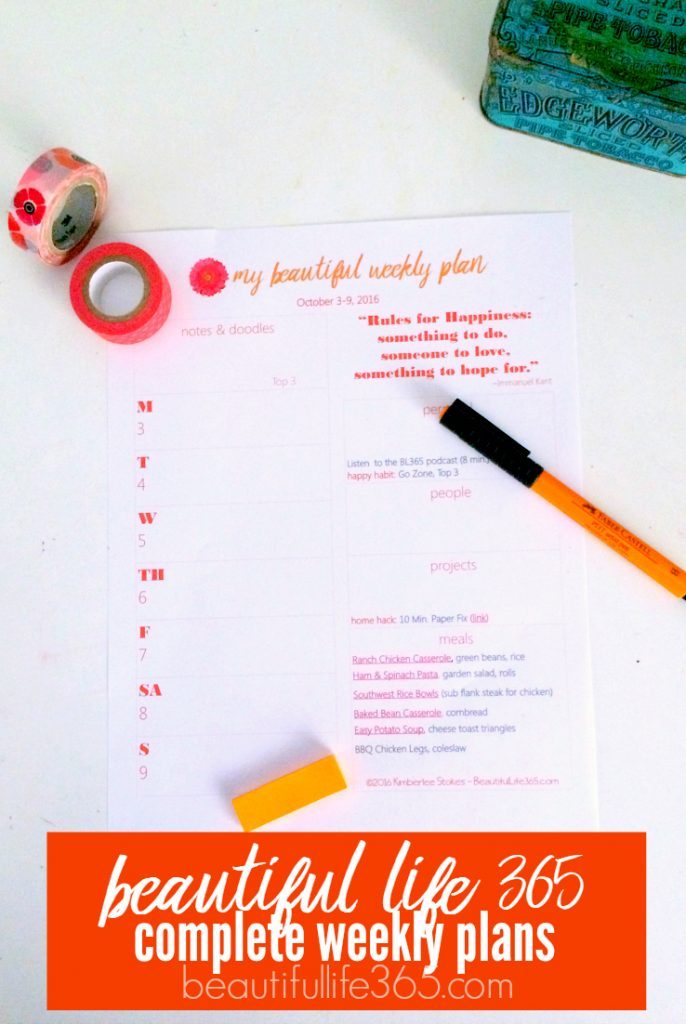 SLICED
PIPE TOBACCO
EDGEWORTH
SLICED
PIPE TOBACCO
3M
my beautiful weekly plan
October 3-9, 2016
notes & doodles
Top 3
"Rules for Happiness:
something to do,
someone to love,
something to hope for."
~Immanuel Kant
M
3
T
4
W
5
TH
6
F
7
SA
8
S
9
Listen to the BL365 podcast (8 min
happy habit: Go Zone, Top 3
people
projects
home hack: 10 Min. Paper Fix (link)
meals
Ranch Chicken Casserole, green beans, rice
Ham & Spinach Pasta garden salad, rolls
Southwest Rice Bowls (sub flank steak for chicken)
Baked Bean Casserole, cornbread
Easy Potato Soup, cheese toast triangles
BBQ Chicken Legs, coleslaw
©2016 Kimberlee Stokes ~ BeautifulLife365.com
FABER-CASTELL
beautiful life 365
complete weekly plans
beautifullife365.com